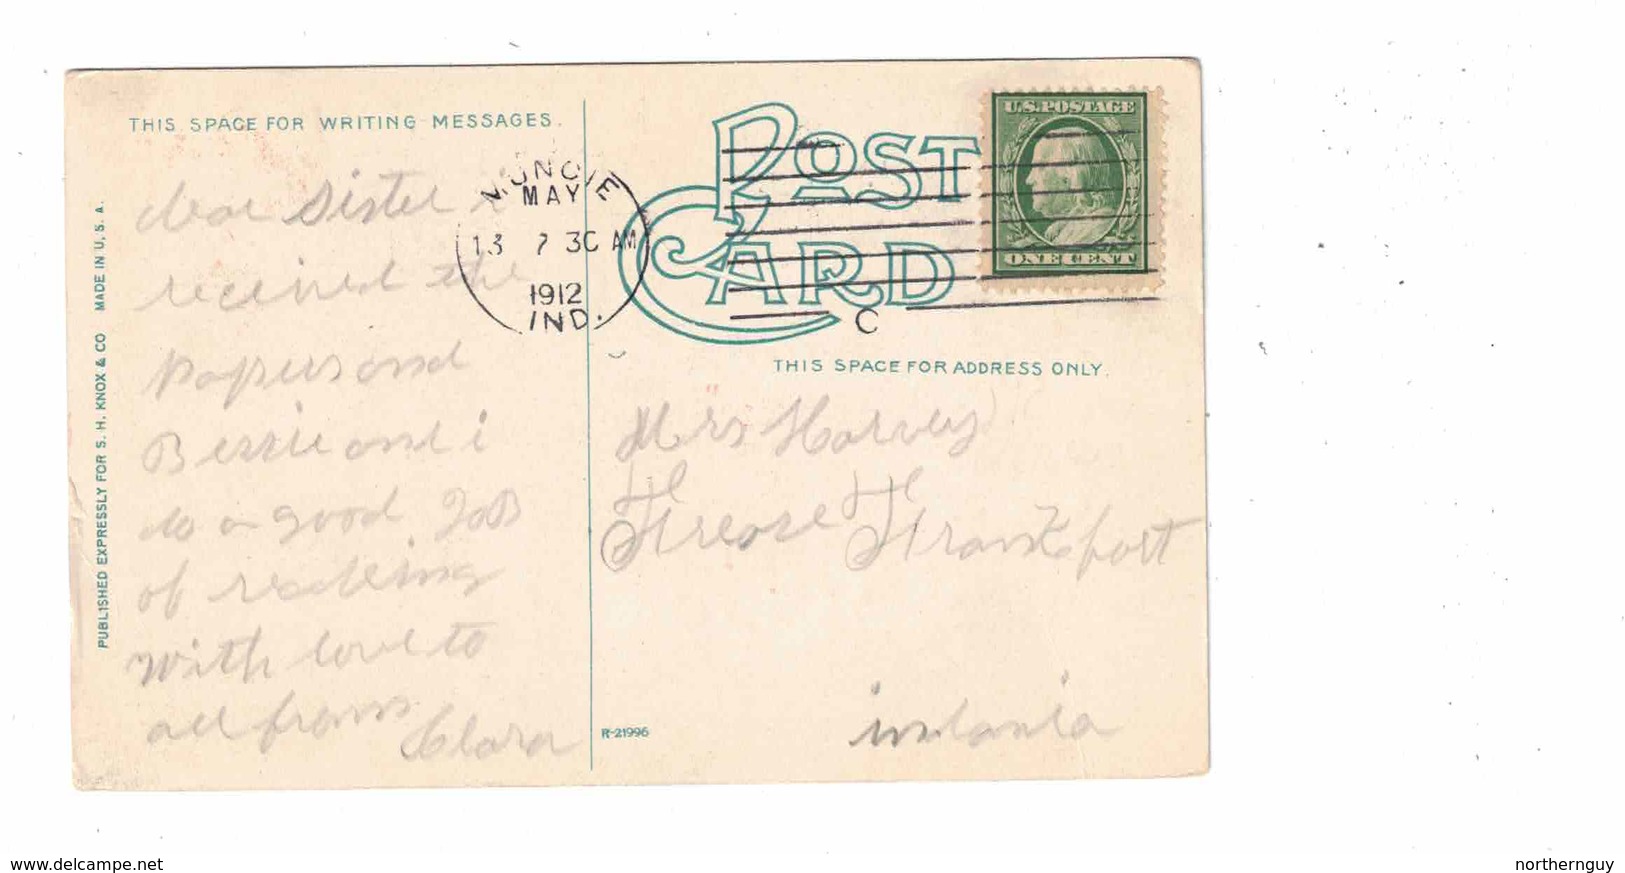 THIS SPACE FOR WRITING MESSAGES.
dear Sister i
received the
papers and
Bessie and i
do a good JoB
of reading
With love to
all from
Clara
PUBLISHED EXPRESSLY FOR S. H. KNOX & CO MADE IN U. S. A.
MUNCIE
MAY
13 7 30 AM
1912
IND.
POST CARD
C
U.S. POSTAGE
ONE CENT
THIS SPACE FOR ADDRESS ONLY.
Mrs Harvey
Frankfort
R-21996
www.delcampe.net
northernguy